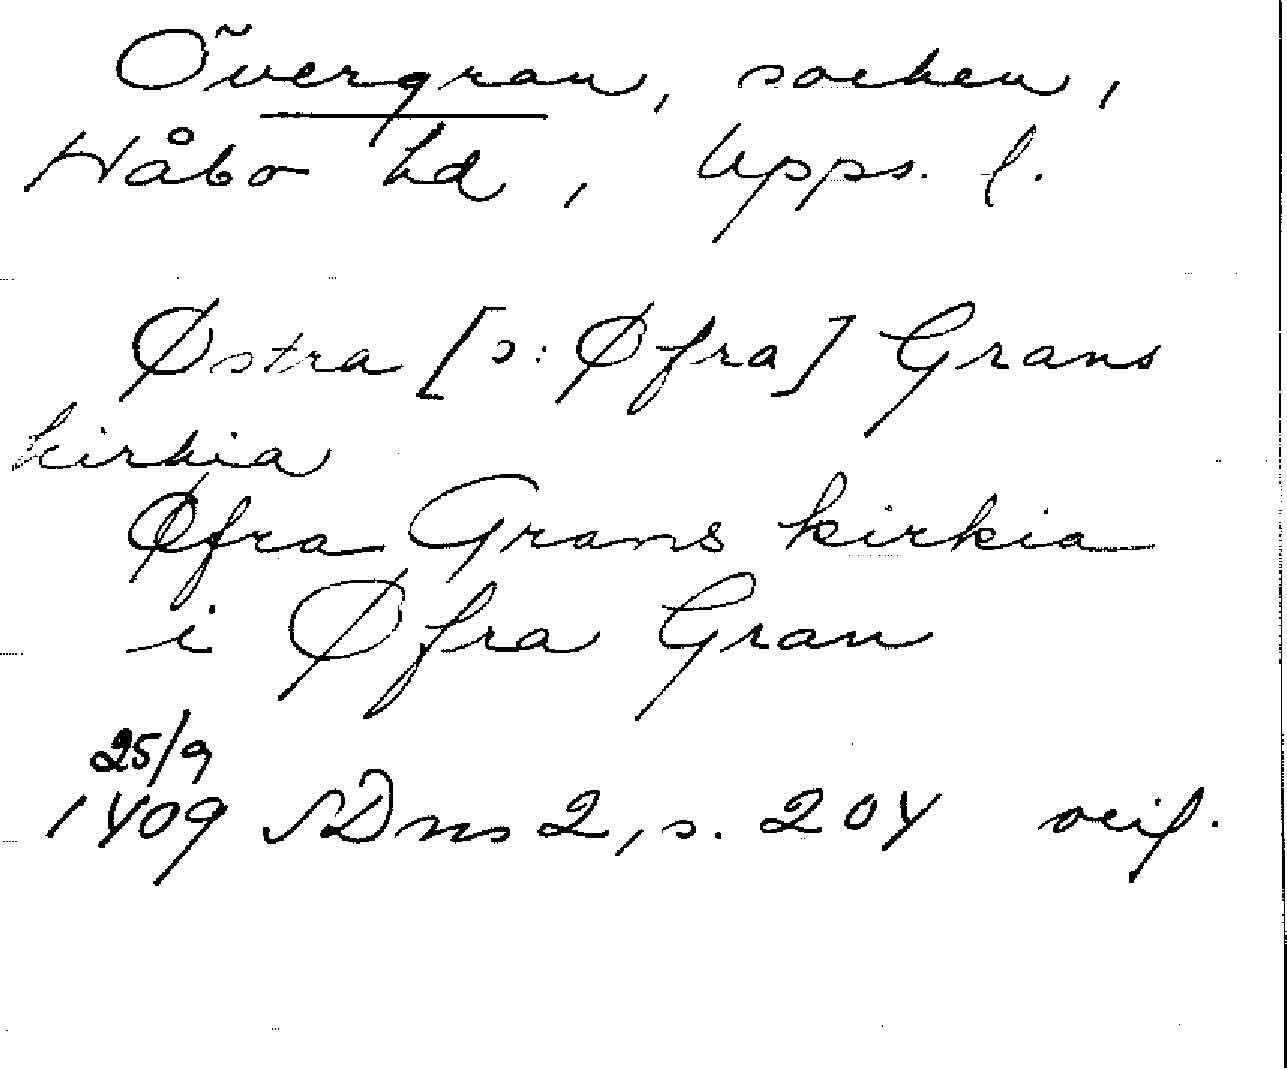 Övergran, socken,
Håbo hd, Upps. l.
Østra [ɔ: Øfra] Grans
kirkia
Øfra Grans kirkia
i Øfra Gran
25/9
1409 SDns 2, s. 204 orig.